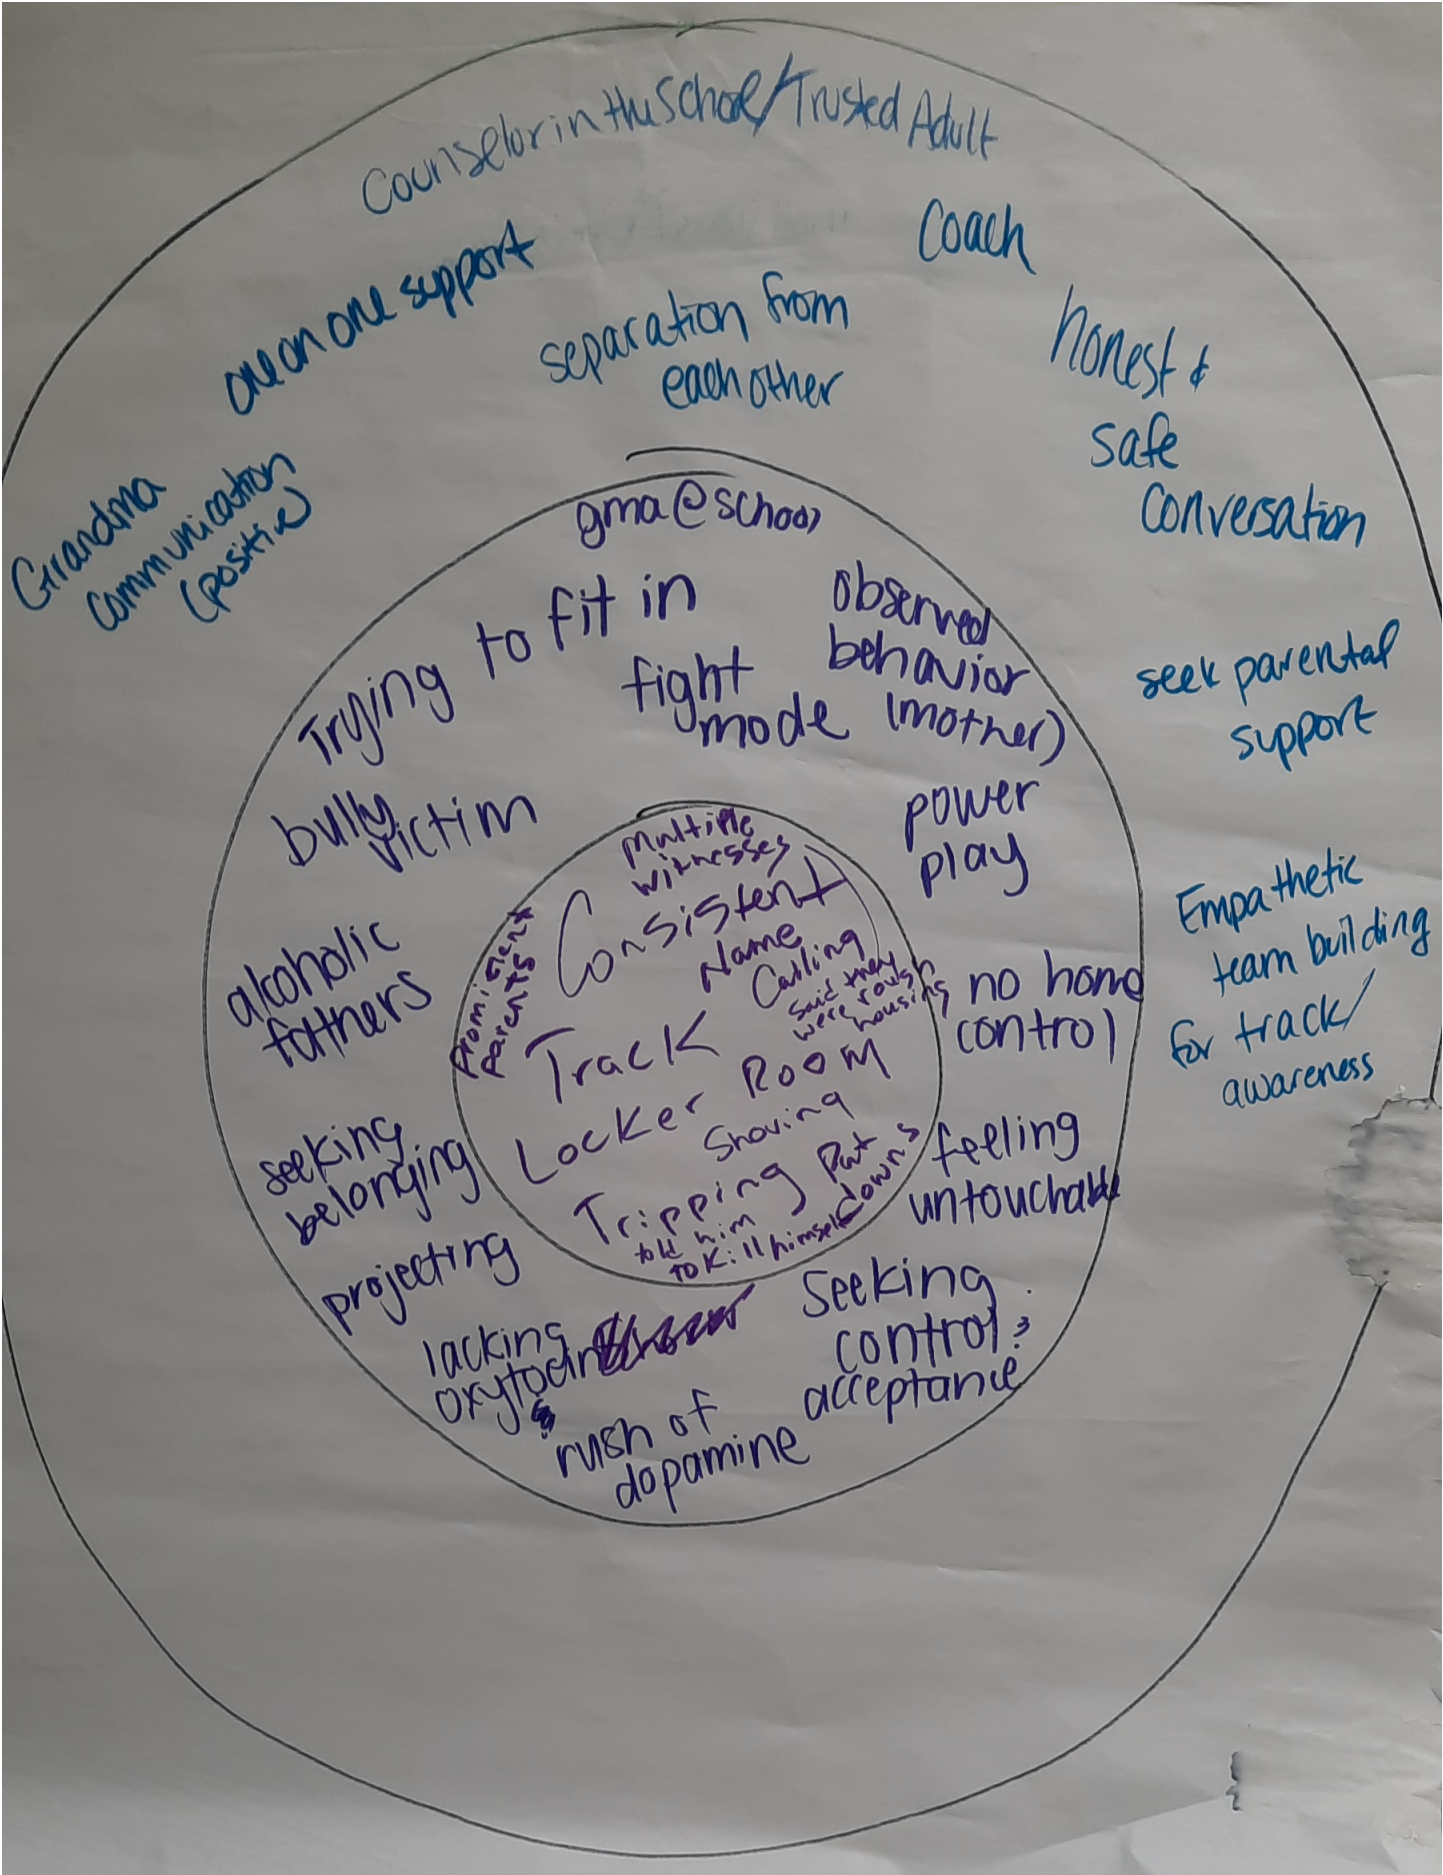 Counselor in the School/Trusted Adult
Coach
one on one support
separation from
each other
honest &
safe
conversation
Grandma
communication
(positive)
seek parental
support
Empathetic
team building
for track/
awareness
gma@school
Trying to fit in
fight
mode
observed
behavior
(mother)
bully
victim
power
play
alcoholic
fathers
no home
control
seeking
belonging
feeling
untouchable
projecting
lacking
oxytocin
rush of
dopamine
Seeking
control &
acceptance
multiple
witnesses
Consistent
Name
Calling
said they
were rough
housing
parents
Track
Locker Room
Shoving
Tripping
Put
downs
told him
to kill himself